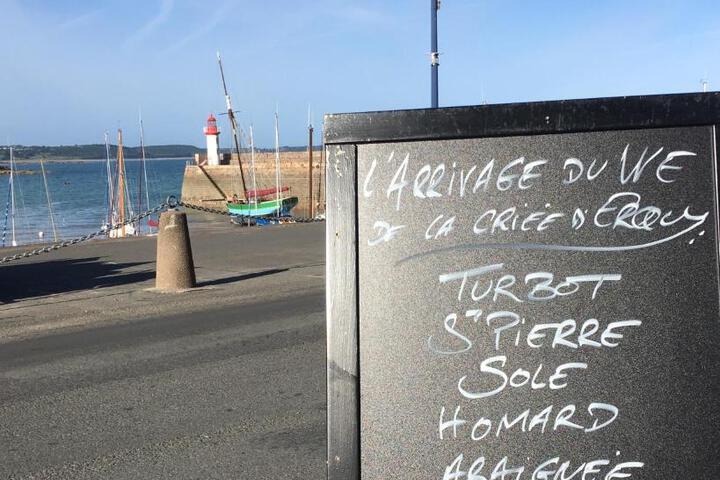 L'ARRIVAGE DU WE
DE LA CRIÉE D'ERQUY
TURBOT
ST PIERRE
SOLE
HOMARD
ARAIGNÉE